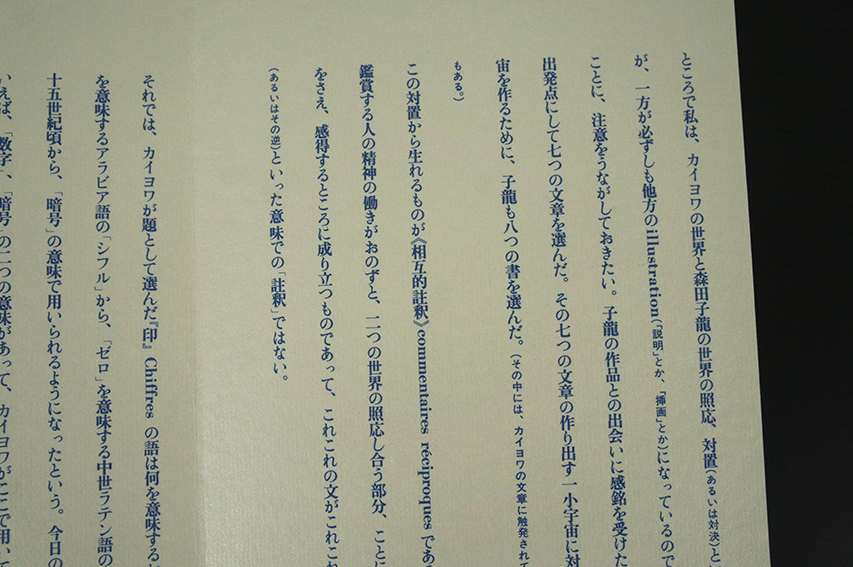 ところで私は、カイヨワの世界と森田子龍の世界の照応、対置(あるいは対決)と
が、一方が必ずしも他方のillustration(「説明」とか、「挿画」とか)になっているので
ことに、注意をうながしておきたい。子龍の作品との出会いに感銘を受けた
出発点にして七つの文章を選んだ。その七つの文章の作り出す一小宇宙に対
宙を作るために、子龍も八つの書を選んだ。(その中には、カイヨワの文章に触発されて
もある。)
この対置から生れるものが《相互的註釈》commentaires réciproques であ
鑑賞する人の精神の働きがおのずと、二つの世界の照応し合う部分、ことに
をさえ、感得するところに成り立つものであって、これこれの文がこれこれ
(あるいはその逆)といった意味での「註釈」ではない。
それでは、カイヨワが題として選んだ『印』Chiffres の語は何を意味する
を意味するアラビア語の「シフル」から、「ゼロ」を意味する中世ラテン語の
十五世紀頃から、「暗号」の意味で用いられるようになったという。今日の
いえば、「数字」、「暗号」の二つの意味があって、カイヨワがここで用いて